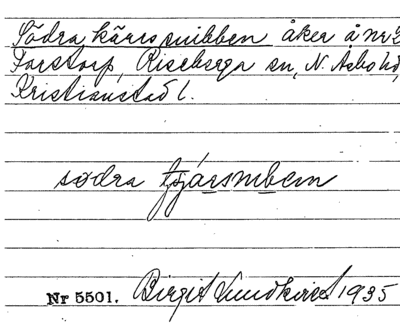 Södra kärrsnibben åker å nr 2
Forstorp, Riseberga sn, N. Åsbo hd,
Kristianstad l.
södra tjársnıben
Nr 5501. Birgit Lundkvist 1935